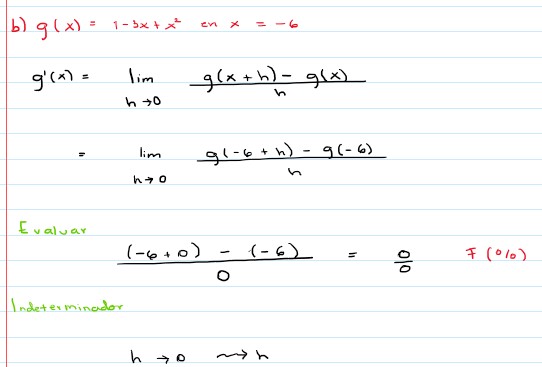 b) g(x) = 1-3x+x² en x = -6
g'(x) = lim h→0 g(x+h) - g(x) / h
= lim h→0 g(-6+h) - g(-6) / h
Evaluar
(-6+0) - (-6) / 0 = 0/0 F(0/0)
Indeterminador
h → 0 ⇝ h